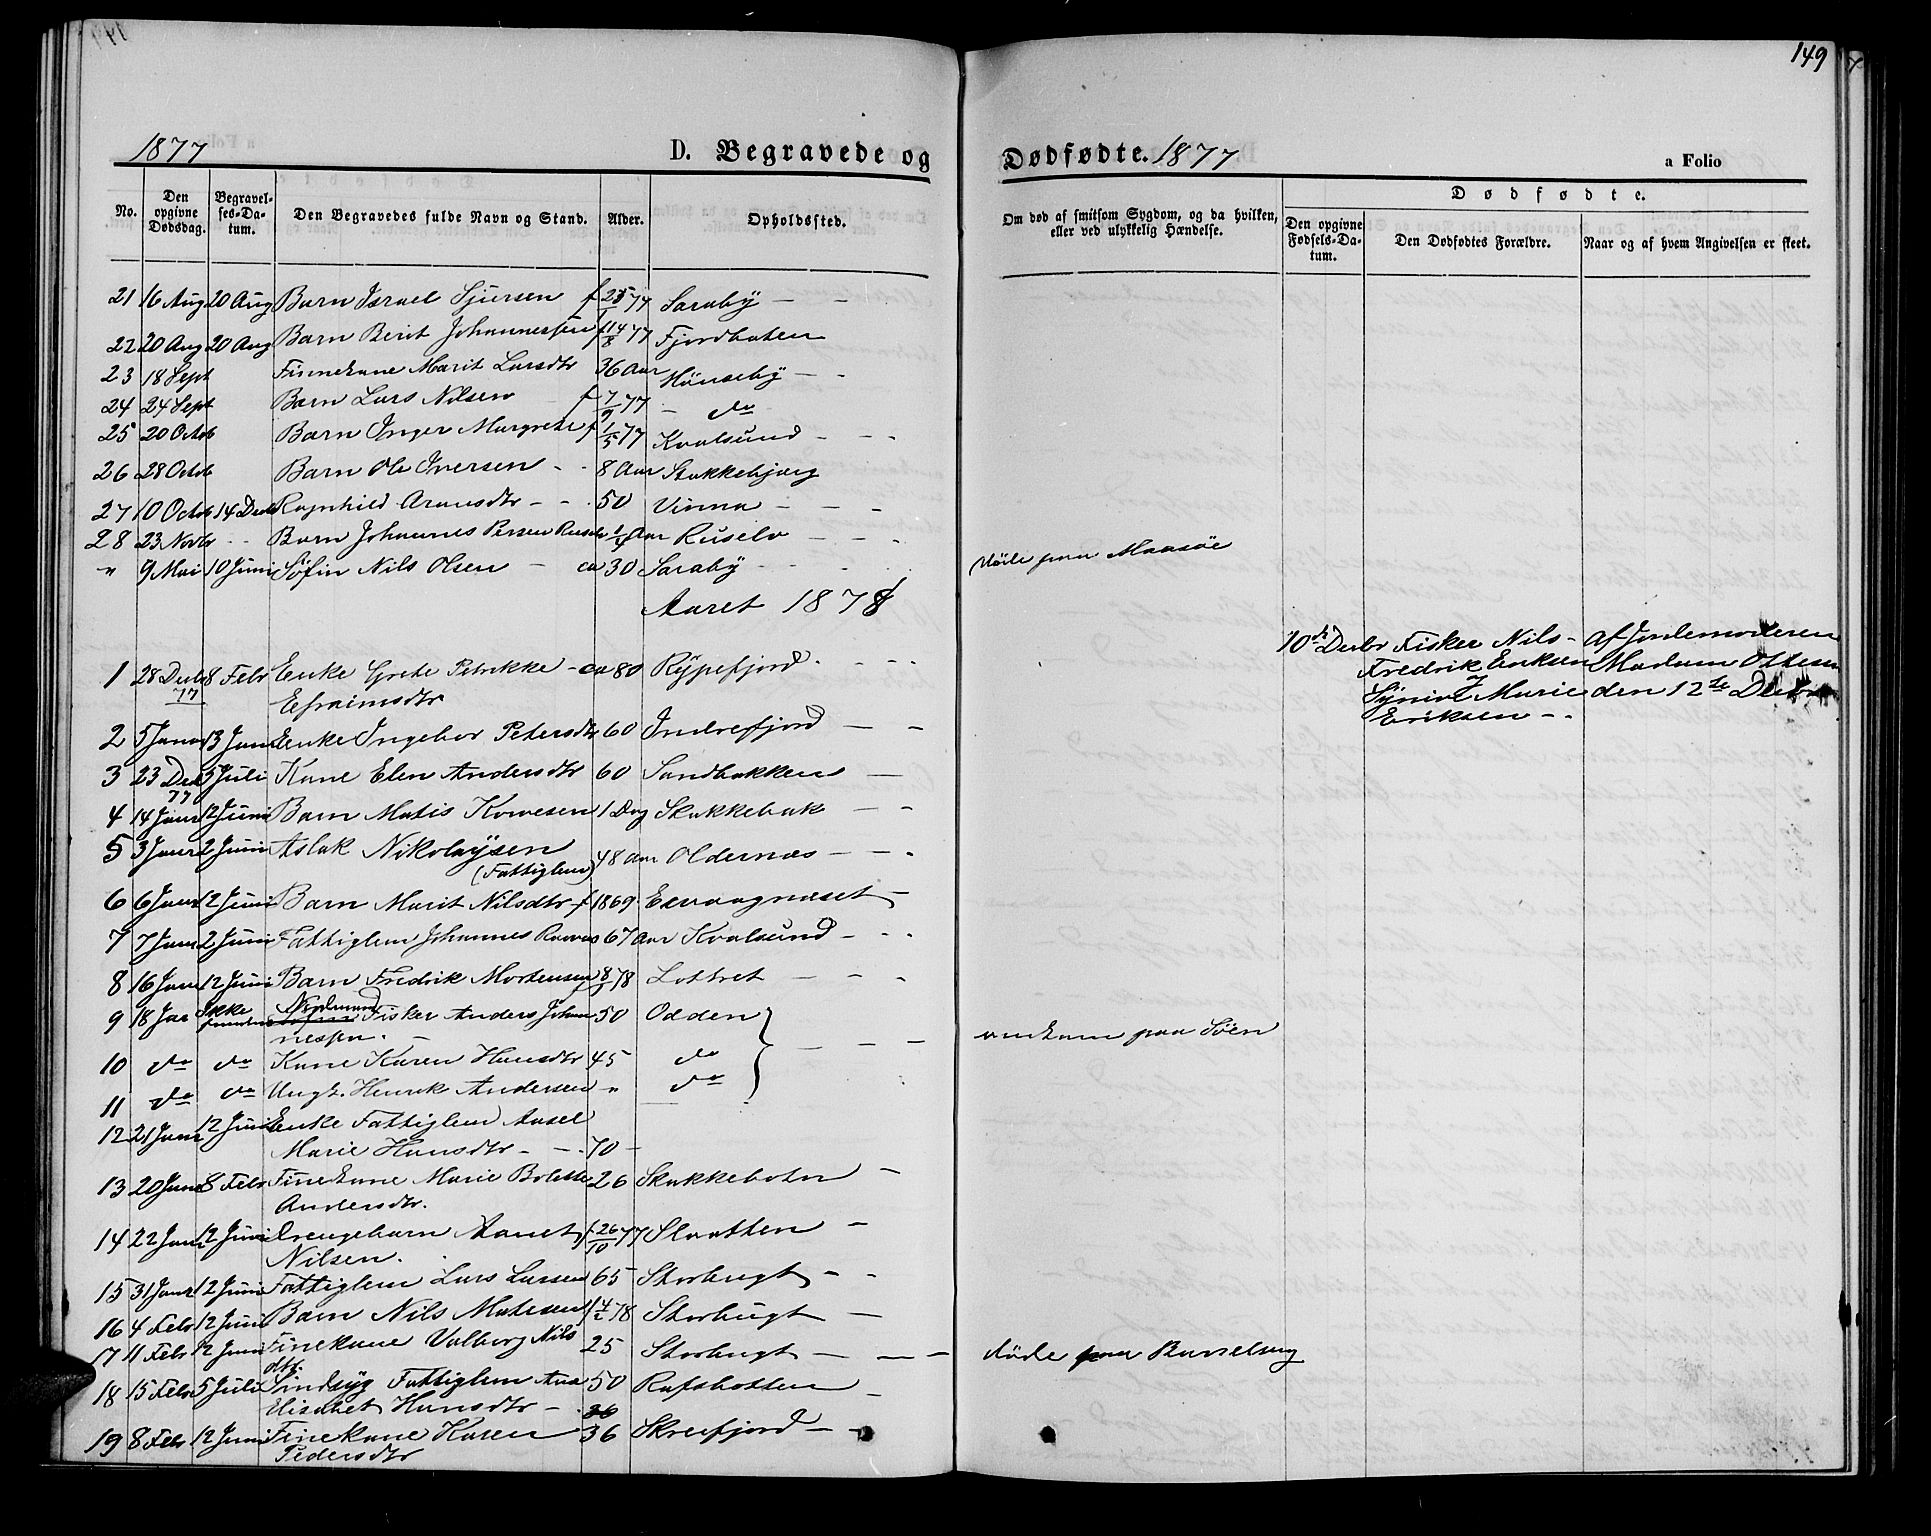 149
1877 D. Begravede og Dødfødte. 1877 a Folio
No. Den opgivne Dødsdag. Begravelses-Datum. Den Begravedes fulde Navn og Stand. Alder. Opholdssted. Om død af smitsom Sygdom, og da hvilken, eller ved ulykkelig Hændelse. Dødfødte. Den opgivne Fødsels-Datum. Den Dødfødtes Forældre. Naar og af hvem Angivelsen er skeet.
21 16 Aug 20 Aug Barn Israel Sjursen f 77 Saraby
22 20 Aug 20 Aug Barn Berit Johannessen f 14/8 77 Fjordboten
23 18 Sept Finnekone Marit Larsdtr 36 Aar Hönseby
24 24 Sept Barn Lars Nilsen f 7/9 77 do
25 20 Octob Barn Inger Margrete f 1/5 77 Kvalsund
26 28 Octob Barn Ole Iversen 8 Aar Stokkebjerg
27 10 Octob 14 Decb Ragnhild Aronsdtr 50 Vinna
28 23 Novbr Barn Johannes Persen 1/4 Aar Ruselv
" 9 Mai 10 Juni Søfin Nils Olsen ca 30 Saraby døde paa Maasøe
Aaret 1878
1 28 Decb 77 8 Febr Enke Grete Petrikke Efraimsdtr ca 80 Rypefjord
10de Decbr Fisker Nils Fredrik Eriksen Marie Eriksen af Jordemoderen Madam Ottesen den 12te Decbr
2 5 Janr 13 Janr Enke Ingebor Petersdtr 60 Indrefjord
3 23 Decb 77 5 Juli Kone Elen Andersdtr 60 Sandbakken
4 14 Janr 12 Juni Barn Matis 1 Dag Skakkebak
5 3 Janr 2 Juni Aslak Nikolaysen (Fattiglem) 48 Aar Oldernæs
6 6 Janr 12 Juni Barn Marit Nilsdtr f 1869 Esvaagnæset
7 7 Janr 2 Juni Fattiglem Johannes 67 Aar Kvalsund
8 16 Janr 12 Juni Barn Fredrik Mortensen 8/1 78 Lottret
9 18 Jar Ikke funden Nordmand Fisker Anders Johannessen 50 Odden omkom paa Søen
10 do do Kone Karen Hansdtr 45 do
11 do do Ungk. Henrik Andersen " do
12 21 Janr 12 Juni Enke Fattiglem Marie Hansdtr 70
13 20 Janr 8 Febr Finekone Marie Bolette Andersdtr. 26 Skakkeboln
14 22 Janr 12 Juni Drengebarn Nilsen. f 26/10 77 Slaatten
15 31 Janr 12 Juni Fattiglem Lars Larsen 65 Storbugt
16 4 Febr 12 Juni Barn Nils Matisen f 4/2 78 Storbugt
17 11 Febr 12 Juni Finekone Valborg Nilsdtr. 25 Storbugt døde paa
18 15 Febr 5 Juli Sindsyg Fattiglem Ana Elisabet Hansdtr 50 Rafsbotten
19 8 Febr 12 Juni Finekone Karen Pedersdtr 36 Skreifjord